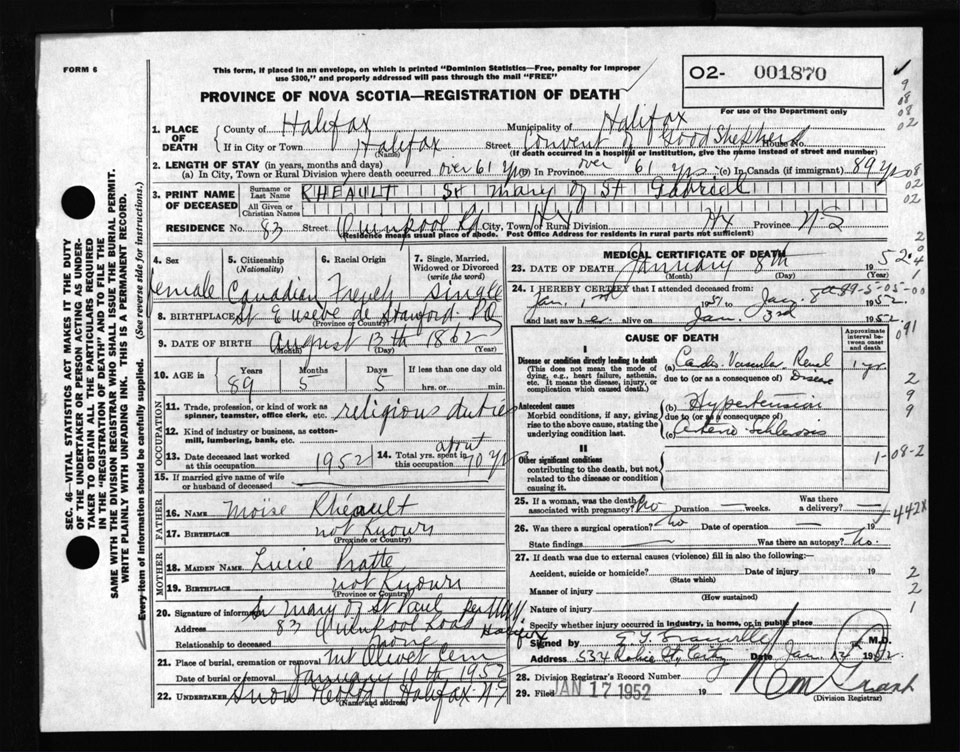 FORM 6
This form, if placed in an envelope, on which is printed "Dominion Statistics—Free, penalty for improper
use $300," and properly addressed will pass through the mail "FREE"
PROVINCE OF NOVA SCOTIA—REGISTRATION OF DEATH
02- 001870
For use of the Department only
1. PLACE OF DEATH
County of Halifax Municipality of Halifax
If in City or Town Halifax (Name) Street Convent of Good Shepherd House No.
(If death occurred in a hospital or institution, give the name instead of street and number)
2. LENGTH OF STAY (in years, months and days)
(a) In City, Town or Rural Division where death occurred over 61 yrs (b) In Province over 61 yrs (c) In Canada (if immigrant) 89 yrs
3. PRINT NAME OF DECEASED
Surname or Last Name RHEAULT Sr Mary of St Gabriel
All Given or Christian Names
RESIDENCE No. 83 Street Quinpool Rd City, Town or Rural Division Hx Hx Province NS
(Residence means usual place of abode. Post Office Address for residents in rural parts not sufficient)
4. Sex Female
5. Citizenship (Nationality) Canadian
6. Racial Origin French
7. Single, Married, Widowed or Divorced (write the word) single
8. BIRTHPLACE St Eusebe de Stanford PQ
(Province or Country)
9. DATE OF BIRTH August 13th 1862
(Month) (Day) (Year)
10. AGE in Years 89 Months 5 Days 5 If less than one day old hrs. or min.
OCCUPATION
11. Trade, profession, or kind of work as spinner, teamster, office clerk, etc. religious duties
12. Kind of industry or business, as cotton-mill, lumbering, bank, etc.
13. Date deceased last worked at this occupation 1952
14. Total yrs. spent in this occupation about 70 yrs
15. If married give name of wife or husband of deceased
FATHER
16. NAME Moïse Rhéault
17. BIRTHPLACE not Known
(Province or Country)
MOTHER
18. MAIDEN NAME Lucie Pratte
19. BIRTHPLACE not Known
(Province or Country)
20. Signature of informant Sr Mary of St Paul
Address 83 Quinpool Road Halifax
Relationship to deceased none
21. Place of burial, cremation or removal Mt Olivet Cem
Date of burial or removal January 10th, 1952
22. UNDERTAKER Snow Halifax NS
(Name and address)
MEDICAL CERTIFICATE OF DEATH
23. DATE OF DEATH January 8th 1952
(Month) (Day) (Year)
24. I HEREBY CERTIFY that I attended deceased from:
Jan. 1st 1951 to Jan. 8th 1952
and last saw h er alive on Jan. 3rd 1952
CAUSE OF DEATH
Approximate interval between onset and death
I
Disease or condition directly leading to death
(This does not mean the mode of dying, e.g., heart failure, asthenia, etc. It means the disease, injury, or complication which caused death.)
(a) Cardio Vascular Renal Disease 1 yr
due to (or as a consequence of)
Antecedent causes
Morbid conditions, if any, giving rise to the above cause, stating the underlying condition last.
(b) Hypertension
due to (or as a consequence of)
(c) Arterio Schlerosis
II
Other significant conditions
contributing to the death, but not related to the disease or condition causing it.
25. If a woman, was the death associated with pregnancy? No Duration weeks. Was there a delivery?
26. Was there a surgical operation? No Date of operation 19
State findings Was there an autopsy? No.
27. If death was due to external causes (violence) fill in also the following:
Accident, suicide or homicide? (State which) Date of injury 19
Manner of injury (How sustained)
Nature of injury
Specify whether injury occurred in industry, in home, or in public place
Signed by E. F. Granville M.D.
Address 534 Robie St, City Date Jan. 1952.
28. Division Registrar's Record Number
29. Filed JAN 17 1952 19
(Division Registrar)
SEC. 46—VITAL STATISTICS ACT MAKES IT THE DUTY
OF THE UNDERTAKER OR PERSON ACTING AS UNDER-
TAKER TO OBTAIN ALL THE PARTICULARS REQUIRED
IN THE "REGISTRATION OF DEATH" AND TO FILE THE
SAME WITH THE DIVISION REGISTRAR WHO SHALL ISSUE THE BURIAL PERMIT.
WRITE PLAINLY WITH UNFADING INK. THIS IS A PERMANENT RECORD.
Every item of information should be carefully supplied. (See reverse side for instructions.)
9
08
08
02
08
02
02
2
0
4
1
89-5-05-00
091
2
9
9
1-08-2
442X
2
2
1